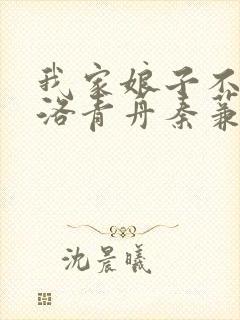 我家娘子不
洛青舟秦蒹
沈晨曦